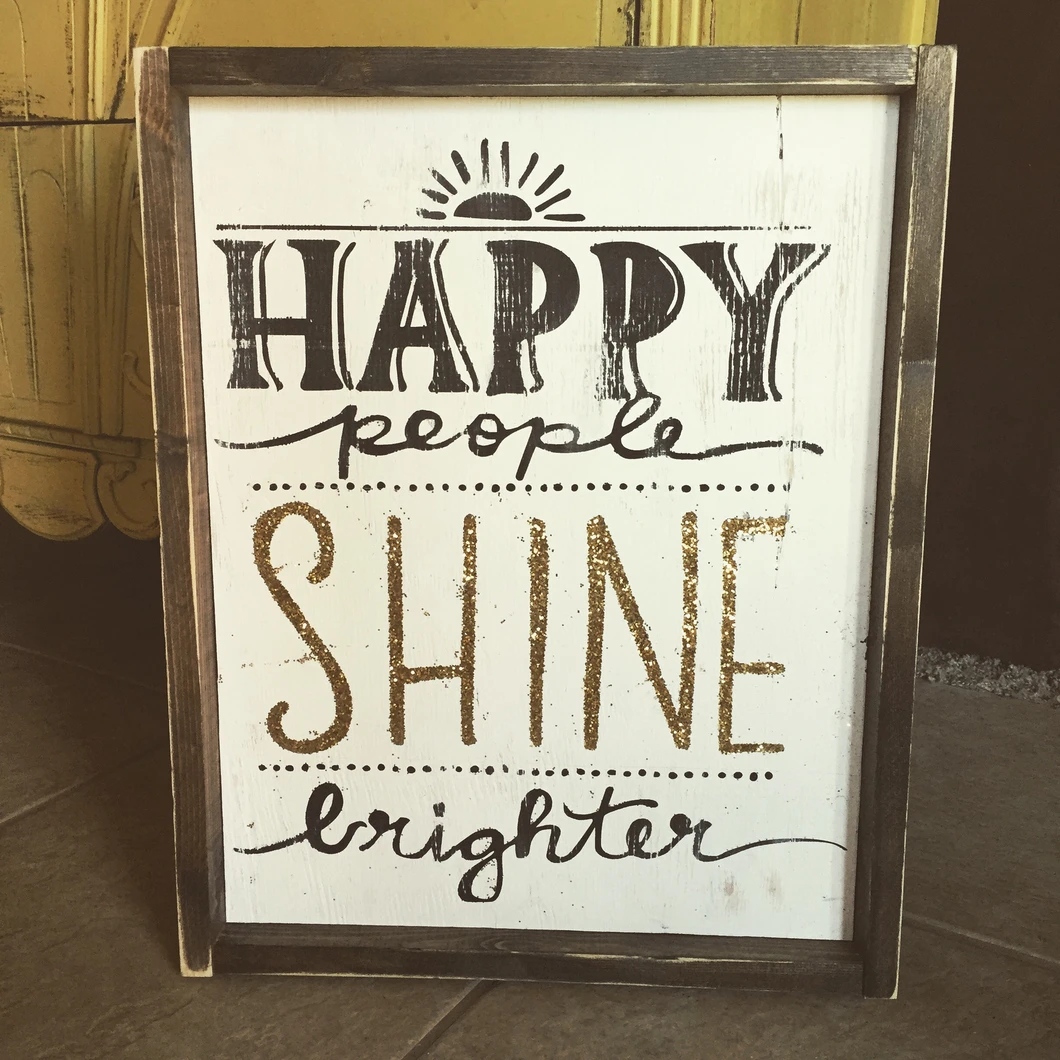 HAPPY
people
SHINE
brighter